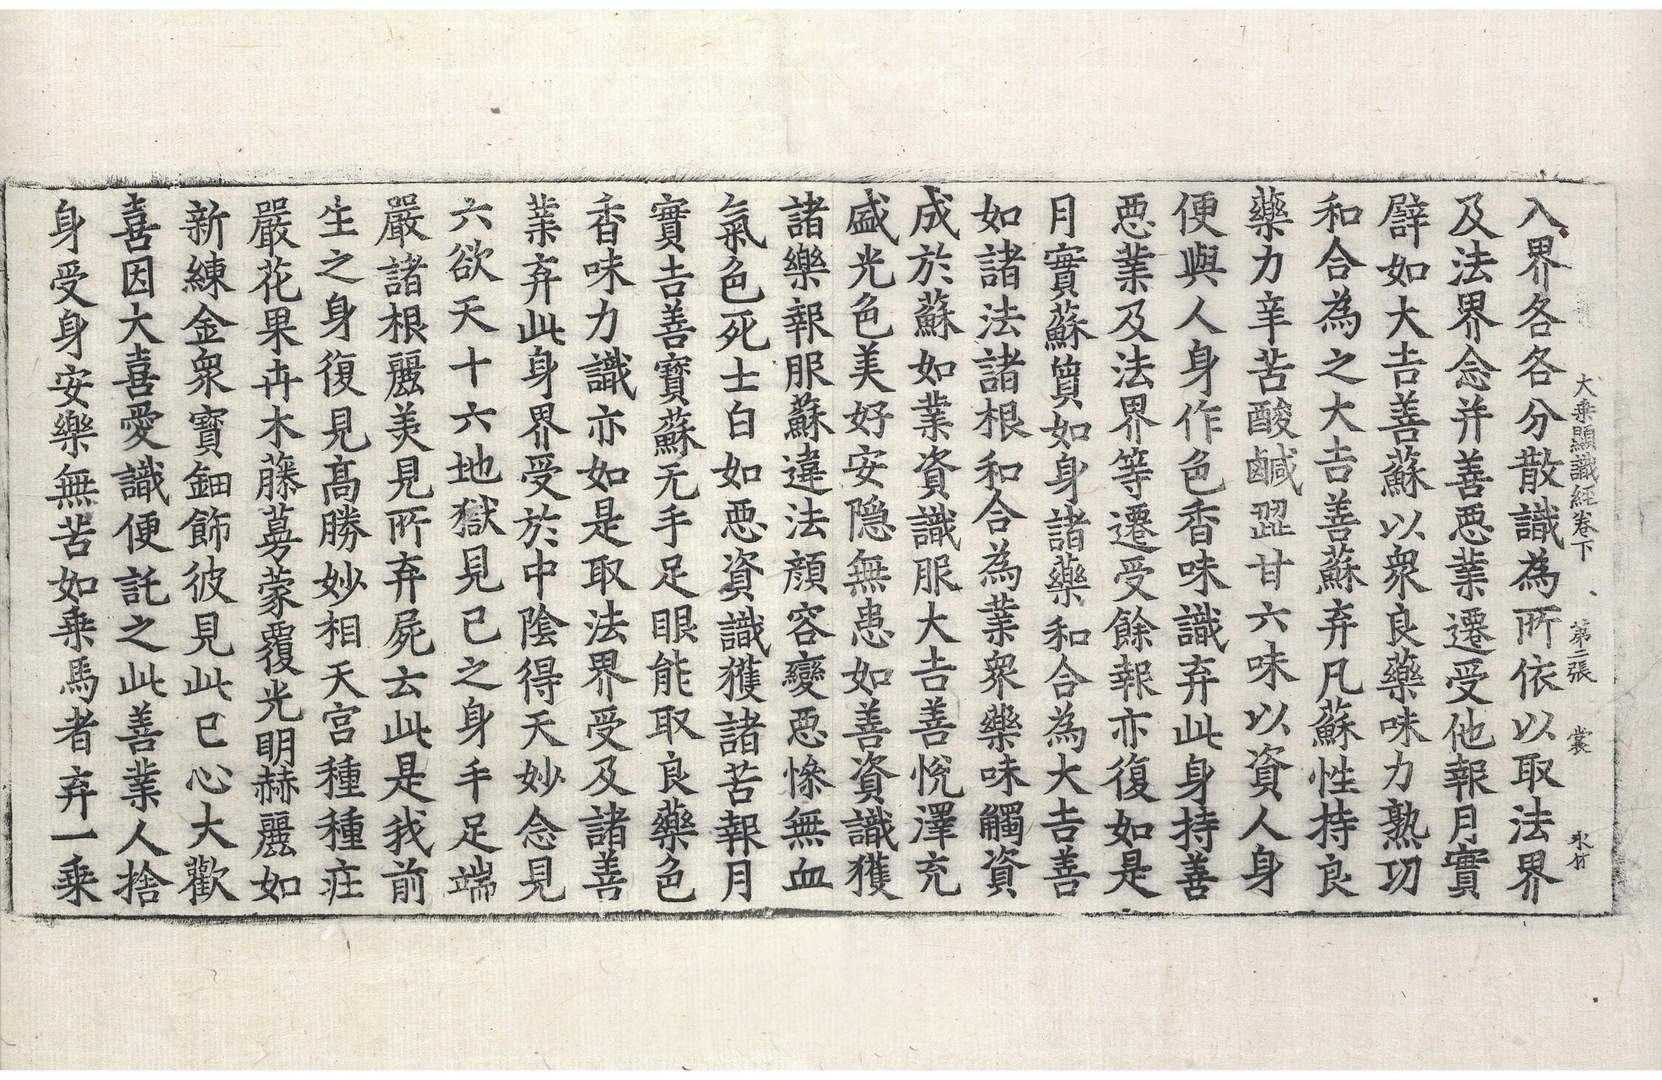 大乘顯識經卷下 第二張 裳
入界各各分散識為所依以取法界
及法界念并善惡業遷受他報月實
譬如大吉善蘇以衆良藥味力熟功
和合為之大吉善蘇弃凡蘇性持良
藥力辛苦酸鹹澀甘六味以資人身
便與人身作色香味識弃此身持善
惡業及法界等遷受餘報亦復如是
月實蘇質如身諸藥和合為大吉善
如諸法諸根和合為業衆藥味觸資
成於蘇如業資識服大吉善悅澤充
盛光色美好安隱無患如善資識獲
諸樂報服蘇違法顏容變惡慘無血
氣色死士白如惡資識獲諸苦報月
實吉善寶蘇无手足眼能取良藥色
香味力識亦如是取法界受及諸善
業弃此身界受於中陰得天妙念見
六欲天十六地獄見已之身手足端
嚴諸根麗美見所弃屍去此是我前
生之身復見高勝妙相天宮種種莊
嚴花果卉木藤蔓蒙覆光明赫麗如
新練金衆寶鈿飾彼見此已心大歡
喜因大喜愛識便託之此善業人捨
身受身安樂無苦如乘馬者弃一乘